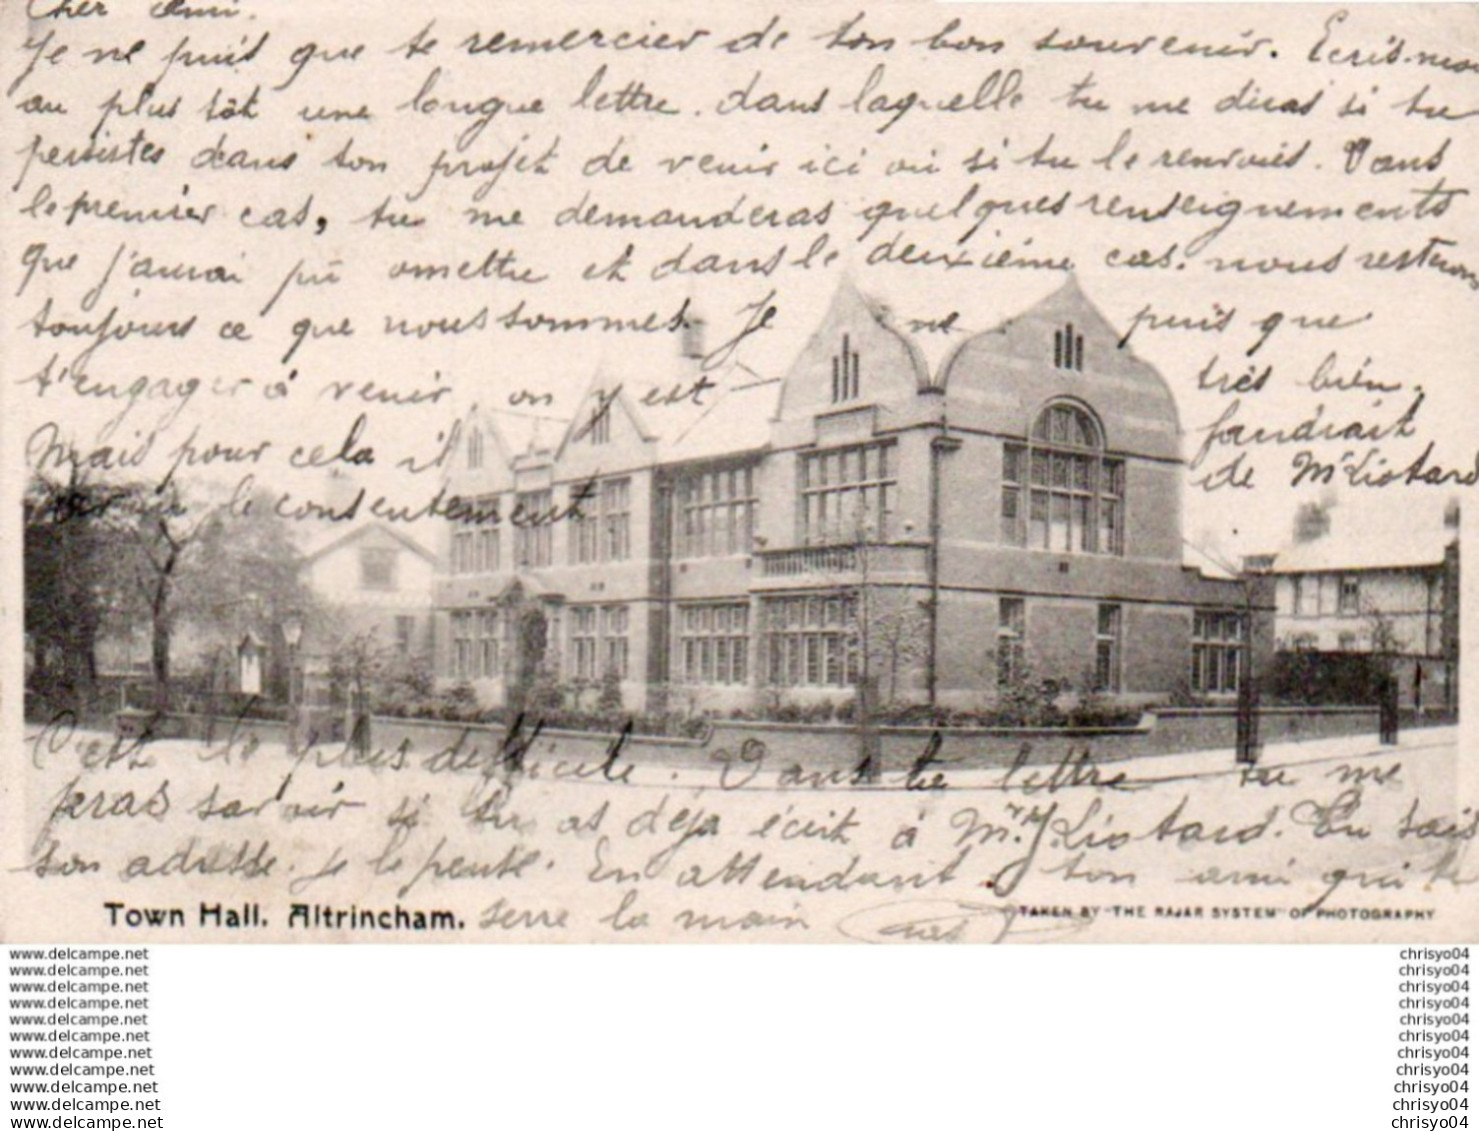 Cher Ami.
Je ne puis que te remercier de ton bon souvenir. Ecris-moi
au plus tôt une longue lettre. dans laquelle tu me diras si tu
persistes dans ton projet de venir ici ou si tu le renvoies. Dans
le premier cas, tu me demanderas quelques renseignements
que j'aurai pu omettre et dans le deuxième cas. nous resterons
toujours ce que nous sommes. Je ne puis que
t'engager à venir on y est très bien.
Mais pour cela il faudrait
avoir le consentement de Mr Liotard
C'est le plus difficile. Dans ta lettre tu me
feras savoir si tu as déjà écrit à Mr J. Liotard. Tu sais
son adresse. je le pense. En attendant ton ami qui te
serre la main
Town Hall. Altrincham.
TAKEN BY "THE RAJAR SYSTEM" OF PHOTOGRAPHY
www.delcampe.net chrisyo04
www.delcampe.net chrisyo04
www.delcampe.net chrisyo04
www.delcampe.net chrisyo04
www.delcampe.net chrisyo04
www.delcampe.net chrisyo04
www.delcampe.net chrisyo04
www.delcampe.net chrisyo04
www.delcampe.net chrisyo04
www.delcampe.net chrisyo04
www.delcampe.net chrisyo04